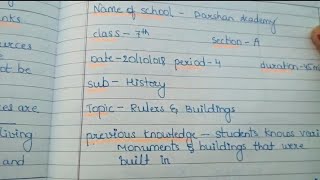 Name of school - Darshan Academy
class - 7th
Section - A
Date - 20/10/018 period - 4
duration - 35 min
sub - History
Topic - Rulers & Buildings
previous knowledge - students knows vari
Monuments & buildings that were
built in
nks
urces
ot be
es are
living
and